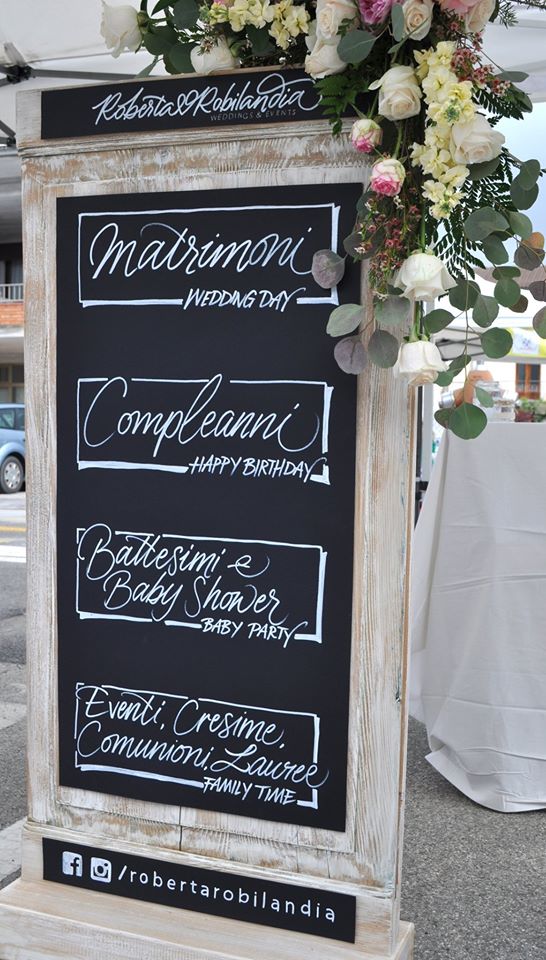 Roberta Robilandia
WEDDINGS & EVENTS
Matrimoni
WEDDING DAY
Compleanni
HAPPY BIRTHDAY
Battesimi e
Baby Shower
BABY PARTY
Eventi, Cresime,
Comunioni, Lauree
FAMILY TIME
/robertarobilandia